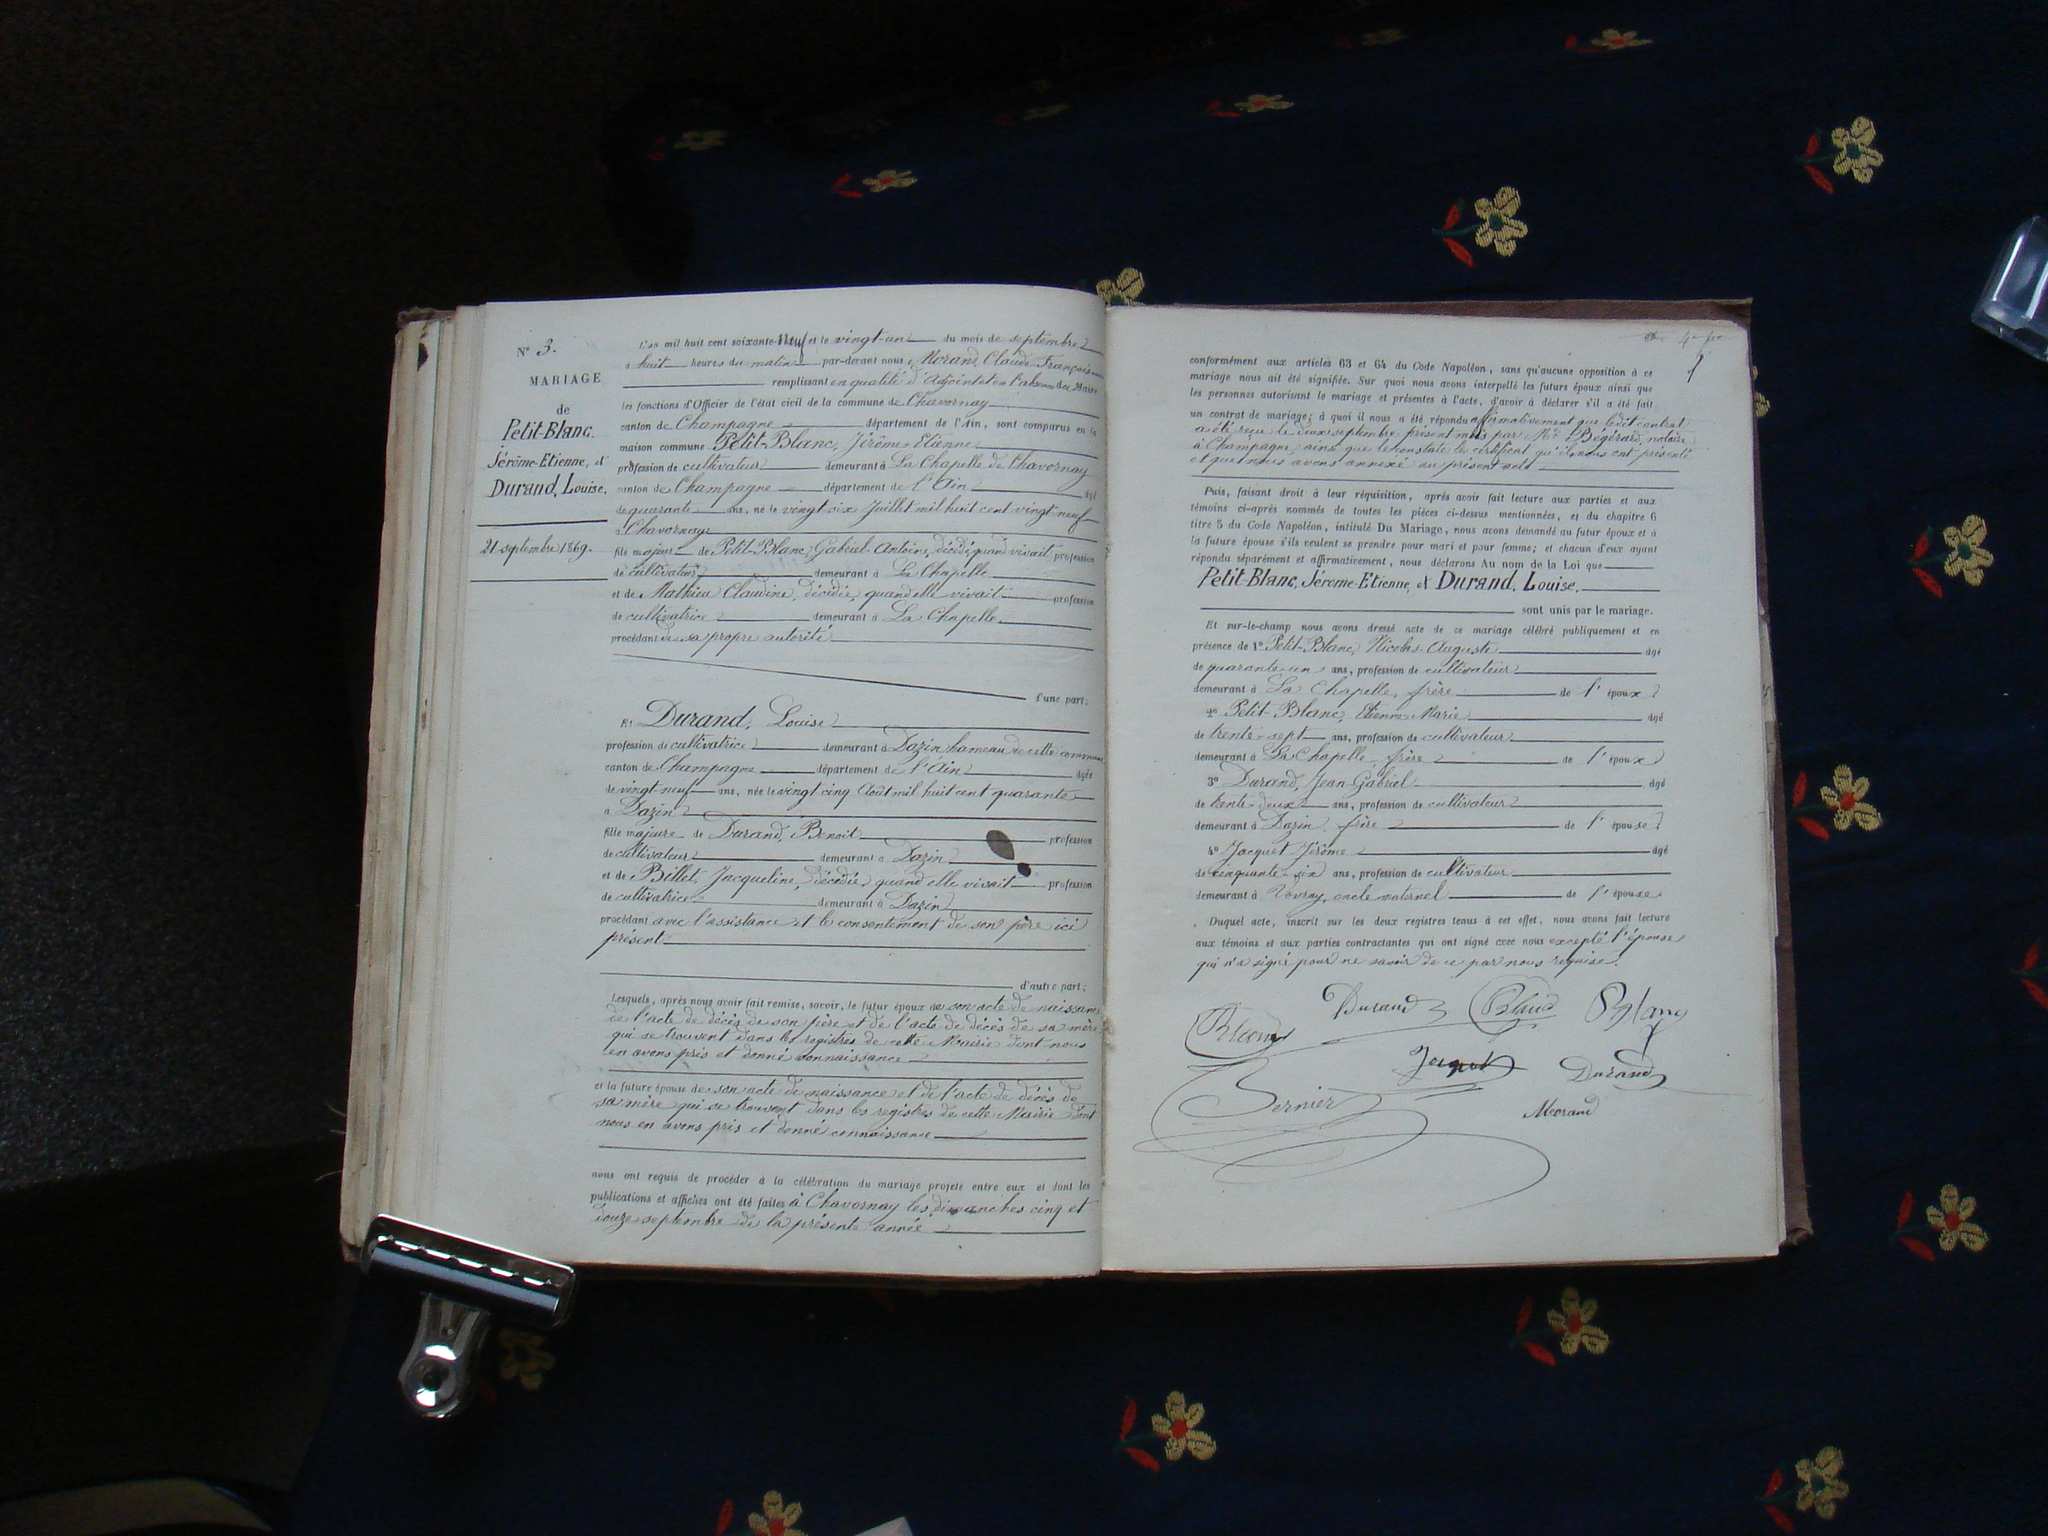 N° 3.
MARIAGE
de
Petit-Blanc,
Jérôme-Etienne, et
Durand, Louise.
21 septembre 1869.
L'an mil huit cent soixante-neuf et le vingt-un du mois de septembre
à huit heures du matin par-devant nous, Morand, Claude-François
remplissant en qualité d'Adjoint et en l'absence du Maire
les fonctions d'Officier de l'état civil de la commune de Chavornay
canton de Champagne département de l'Ain, sont comparus en la
maison commune Petit-Blanc, Jérôme-Etienne
profession de cultivateur demeurant à La Chapelle de Chavornay
canton de Champagne département de l'Ain âgé
de quarante ans, né le vingt six Juillet mil huit cent vingt neuf
à Chavornay
fils majeur de Petit-Blanc, Gabriel-Antoine, décédé, quand vivait profession
de cultivateur demeurant à La Chapelle
et de Mathieu Claudine, décédée, quand elle vivait profession
de cultivatrice demeurant à La Chapelle
procédant de sa propre autorité
d'une part;
Et Durand, Louise
profession de cultivatrice demeurant à Dazin hameau de cette commune
canton de Champagne département de l'Ain âgée
de vingt neuf ans, née le vingt cinq Août mil huit cent quarante
à Dazin
fille majeure de Durand, Benoit profession
de cultivateur demeurant à Dazin
et de Billet, Jacqueline, décédée, quand elle vivait profession
de cultivatrice demeurant à Dazin
procédant avec l'assistance et le consentement de son père ici
présent
d'autre part;
Lesquels, après nous avoir fait remise, savoir, le futur époux de son acte de naissance
de l'acte de décès de son père et de l'acte de décès de sa mère
qui se trouvent dans les registres de cette Mairie dont nous
en avons pris et donné connaissance
et la future épouse de son acte de naissance et de l'acte de décès de
sa mère qui se trouvent dans les registres de cette Mairie dont
nous en avons pris et donné connaissance
nous ont requis de procéder à la célébration du mariage projeté entre eux et dont les
publications et affiches ont été faites à Chavornay les dimanches cinq et
douze septembre de la présente année
conformément aux articles 63 et 64 du Code Napoléon, sans qu'aucune opposition à ce
mariage nous ait été signifiée. Sur quoi nous avons interpellé les futurs époux ainsi que
les personnes autorisant le mariage et présentes à l'acte, d'avoir à déclarer s'il a été fait
un contrat de mariage; à quoi il nous a été répondu affirmativement que ledit contrat
a été reçu le deux septembre présent mois par Me Bégérard, notaire
à Champagne, ainsi que le constate le certificat qu'ils nous ont présenté
et que nous avons annexé au présent acte
Puis, faisant droit à leur réquisition, après avoir fait lecture aux parties et aux
témoins ci-après nommés de toutes les pièces ci-dessus mentionnées, et du chapitre 6
titre 5 du Code Napoléon, intitulé Du Mariage, nous avons demandé au futur époux et à
la future épouse s'ils veulent se prendre pour mari et pour femme; et chacun d'eux ayant
répondu séparément et affirmativement, nous déclarons Au nom de la Loi que
Petit-Blanc, Jérôme-Etienne, et Durand, Louise,
sont unis par le mariage.
Et sur-le-champ nous avons dressé acte de ce mariage célébré publiquement et en
présence de 1° Petit-Blanc, Nicolas-Auguste âgé
de quarante-un ans, profession de cultivateur
demeurant à La Chapelle, frère de l'époux
2° Petit-Blanc, Etienne-Marie âgé
de trente-sept ans, profession de cultivateur
demeurant à La Chapelle, frère de l'époux
3° Durand, Jean-Gabriel âgé
de trente-deux ans, profession de cultivateur
demeurant à Dazin, frère de l'épouse
4° Jacquet Jérôme âgé
de cinquante-six ans, profession de cultivateur
demeurant à Vovray, oncle maternel de l'épouse
Duquel acte, inscrit sur les deux registres tenus à cet effet, nous avons fait lecture
aux témoins et aux parties contractantes qui ont signé avec nous excepté l'épouse
qui n'a signé pour ne savoir de ce par nous requise.
Durand
Jaquet Durand
Bernier
Morand